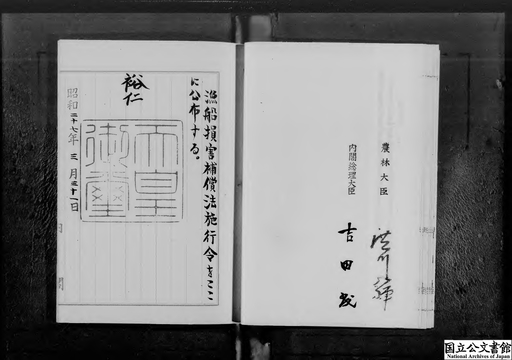 漁船損害補償法施行令をここ
に公布する。
裕仁
天皇
御璽
昭和二十七年三月三十一日
内閣
内閣総理大臣
吉田茂
農林大臣
廣川弘禅
国立公文書館
National Archives of Japan